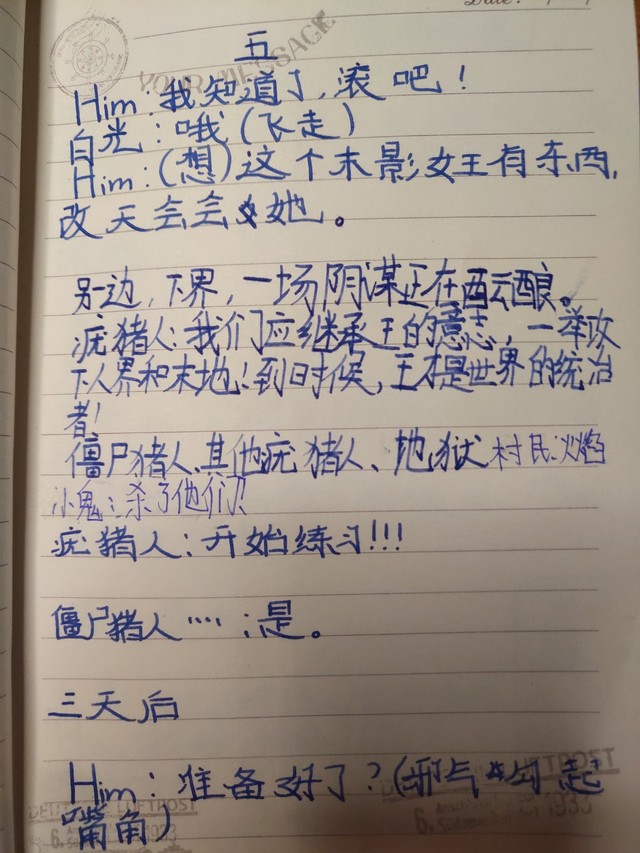 Date:
YOUR MESSAGE
五
Him:我知道了,滚吧!
白光:哦(飞走)
Him:(想)这个末影女王有东西,
改天会会她。
另一边,下界,一场阴谋正在酝酿。
疣猪人:我们应继承王的意志,一举攻
下人界和末地!到时候,王才是世界的统治
者!
僵尸猪人、其他疣猪人、地狱村民、火焰
小鬼:杀了他们!
疣猪人:开始练习!!!
僵尸猪人····:是。
三天后
Him:准备好了?(邪气勾起
嘴角)
LUFTPOST
1933